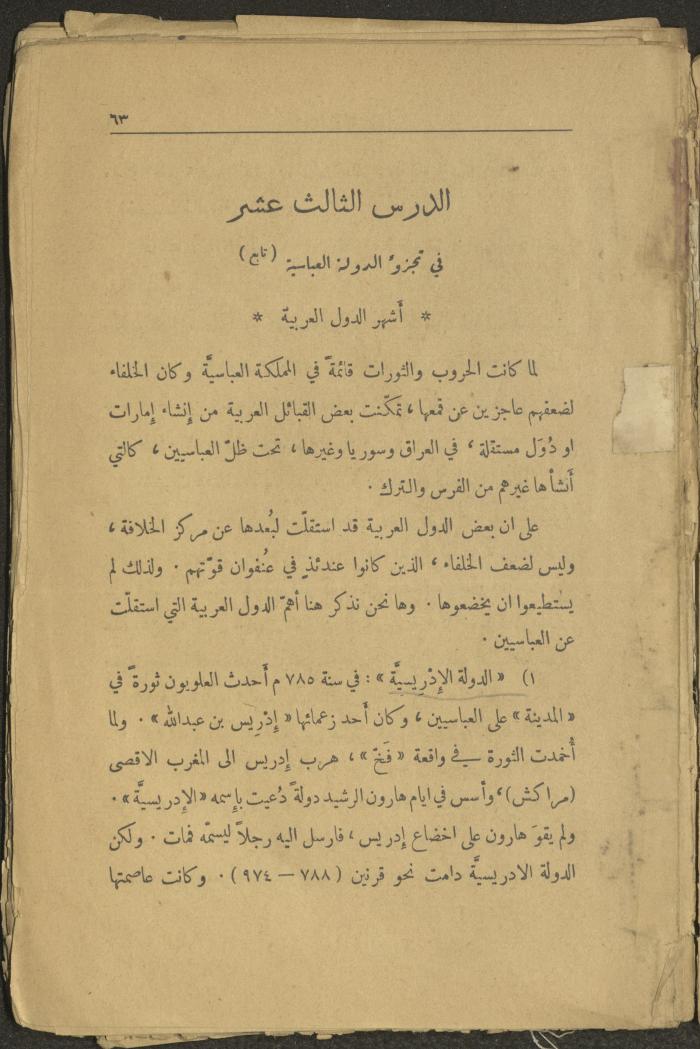 ٦٣
الدرس الثالث عشر
في تجزؤ الدولة العباسية (تابع)
* أَشهر الدول العربية *
لما كانت الحروب والثورات قائمةً في المملكة العباسيَّة وكان الخلفاء
لضعفهم عاجزين عن قمعها، تمكّنت بعض القبائل العربية من إِنشاء إِمارات
او دُوَل مستقلة، في العراق وسوريا وغيرها، تحت ظلّ العباسيين، كالتي
أَنشأها غيرهم من الفرس والترك.
على ان بعض الدول العربية قد استقلّت لبُعدها عن مركز الخلافة،
وليس لضعف الخلفاء، الذين كانوا عندئذٍ في عُنفوان قوّتهم. ولذلك لم
يستطيعوا ان يخضعوها. وها نحن نذكر هنا أَهمّ الدول العربية التي استقلّت
عن العباسيين.
١) «الدولة الإِدْرِيسيَّة»: في سنة ٧٨٥ م أَحدث العلويون ثورةً في
«المدينة» على العباسيين، وكان أَحد زعمائها «إِدْرِيس بن عبدالله». ولما
أُخمدت الثورة في واقعة «فَخّ»، هرب إِدريس الى المغرب الاقصى
(مراكش)، وأسس في ايام هارون الرشيد دولةً دُعيت بإِسمه «الإِدريسيَّة».
ولم يقوَ هارون على اخضاع إِدريس، فارسل اليه رجلاً ليسمّه فمات. ولكن
الدولة الادريسيَّة دامت نحو قرنين (٧٨٨ — ٩٧٤). وكانت عاصمتها